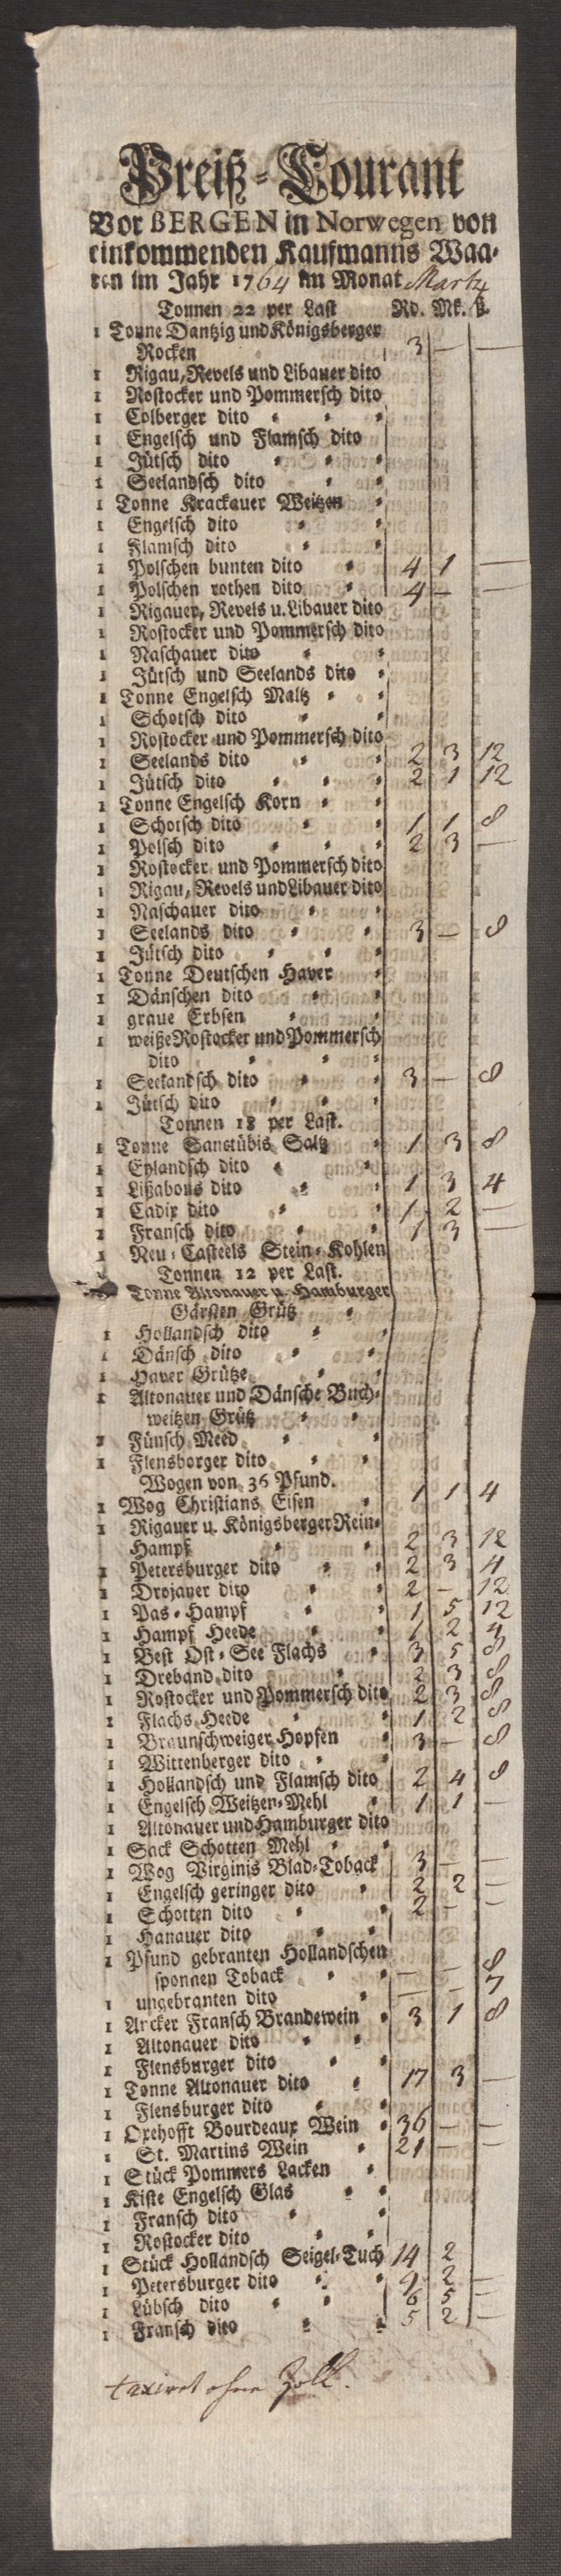 Preiß-Courant
Vor BERGEN in Norwegen von
einkommenden Kaufmanns Waa-
ren im Jahr 1764 im Monat Marty
Tonnen 22 per Last Rd. Mk. ß.
1 Tonne Dantzig und Königsberger
Rocken 3 — —
1 Rigau, Revels und Libauer dito
1 Rostocker und Pommersch dito
1 Colberger dito
1 Engelsch und Flamsch dito
1 Jütsch dito
1 Seelandsch dito
1 Tonne Krackauer Weitzen
1 Engelsch dito
1 Flamsch dito
1 Polschen bunten dito 4 1 —
1 Polschen rothen dito 4 — —
1 Rigauer, Revels u. Libauer dito
1 Rostocker und Pommersch dito
1 Naschauer dito
1 Jütsch und Seelands dito
1 Tonne Engelsch Maltz
1 Schotsch dito
1 Rostocker und Pommersch dito
1 Seelands dito 2 3 12
1 Jütsch dito 2 1 12
1 Tonne Engelsch Korn
1 Schotsch dito 1 1 8
1 Polsch dito 2 3 —
1 Rostocker und Pommersch dito
1 Rigau, Revels und Libauer dito
1 Naschauer dito
1 Seelands dito 3 — 8
1 Jütsch dito
1 Tonne Deutschen Haver
1 Dänschen dito
1 graue Erbsen
1 weiße Rostocker und Pommersch
dito
1 Seelandsch dito 3 — 8
1 Jütsch dito
Tonnen 18 per Last.
1 Tonne Sanctübis Saltz 1 3 8
1 Eylandsch dito
1 Lißabons dito 1 3 4
1 Cadix dito 1 2 —
1 Fransch dito 1 3 —
1 Neu-Casteels Stein-Kohlen
Tonnen 12 per Last.
Tonne Altonauer u. Hamburger
Gärsten Grütz
1 Hollandsch dito
1 Dänsch dito
1 Haver Grütze
1 Altonauer und Dänsche Buch-
weitzen Grütz
1 Fünsch Meed
1 Flensborger dito
Wogen von 36 Pfund.
1 Wog Christians Eisen 1 1 4
1 Rigauer u. Königsberger Rein-
Hampf 2 3 12
1 Petersburger dito 2 3 4
1 Drojaner dito 2 — 12
1 Pas-Hampf 1 5 12
1 Hampf Heede 1 2 4
1 Best Ost-See Flachs 3 5 8
1 Dreband dito 2 3 8
1 Rostocker und Pommersch dito 2 3 8
1 Flachs Heede 1 2 8
1 Braunschweiger Hopfen 3 — 8
1 Wittenberger dito
1 Hollandsch und Flamsch dito 2 4 8
1 Engelsch Weitzen-Mehl 1 1 —
1 Altonauer und Hamburger dito
1 Sack Schotten Mehl
1 Wog Virginis Blad-Toback 3 — —
1 Engelsch geringer dito 2 2 —
1 Schotten dito 2 — —
1 Hanauer dito
1 Pfund gebranten Hollandschen
sponnen Toback — — 8
1 ungebranten dito — — 7
1 Ancker Fransch Brandewein 3 1 8
1 Altonauer dito
1 Flensburger dito
1 Tonne Altonauer dito 17 3 —
1 Flensburger dito
1 Oxehofft Bourdeaux Wein 36 — —
1 St. Martins Wein 21 — —
1 Stück Pommers Lacken
1 Kiste Engelsch Glas
1 Fransch dito
1 Rostocker dito
1 Stück Hollandsch Seigel-Tuch 14 2
1 Petersburger dito 9 2 —
1 Lübsch dito 6 5 —
1 Fransch dito 5 2 —
taxiret ohne Zoll.